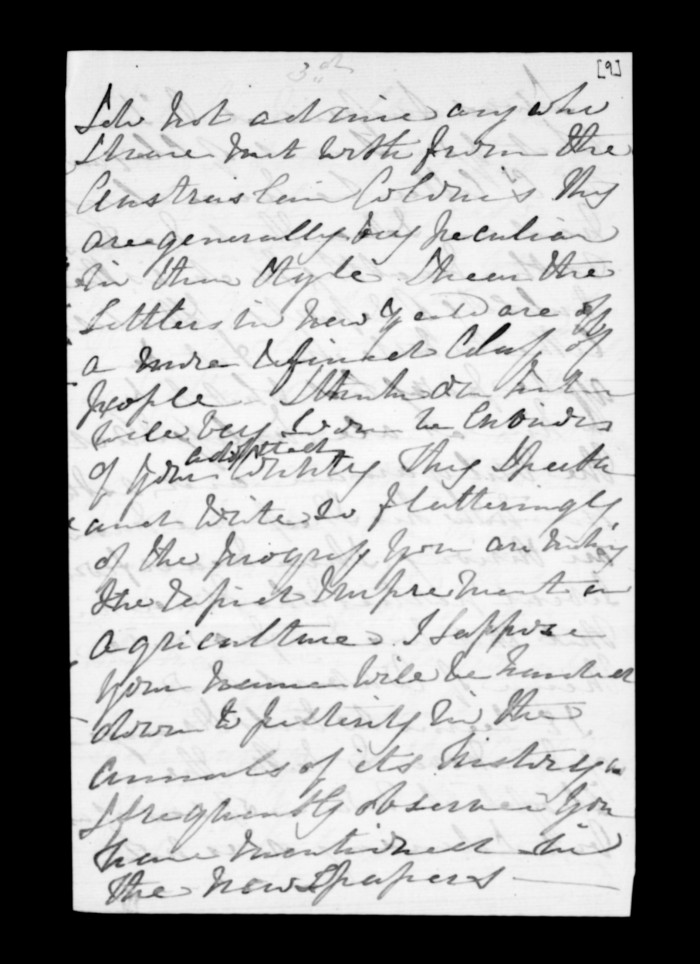 3rd
[9]
I do not admire any who
I have met with from the
Australian Colonies They
are generally very peculiar
in their Style I hear the
Settlers in New Zeald are of
a more refined Class of
people I think on
will very soon be
of your adopted Country They Speak
and write so flatteringly
of the progress you are making
the rapid Improvement in
agriculture. I Suppose
your name will be handed
down to posterity in the
annals of its history
I frequently observe you
have mentioned in
the NewsPapers